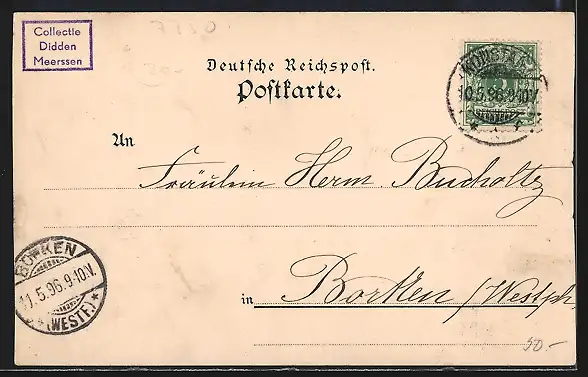 Collectie
Didden
Meerssen
Deutsche Reichspost.
Postkarte.
10.5.96.9-10V.
An
Fräulein Herm. Bucholtz
BORKEN
11.5.96.9-10.V.
* (WESTF.) *
in Borken /Westph.
50.-